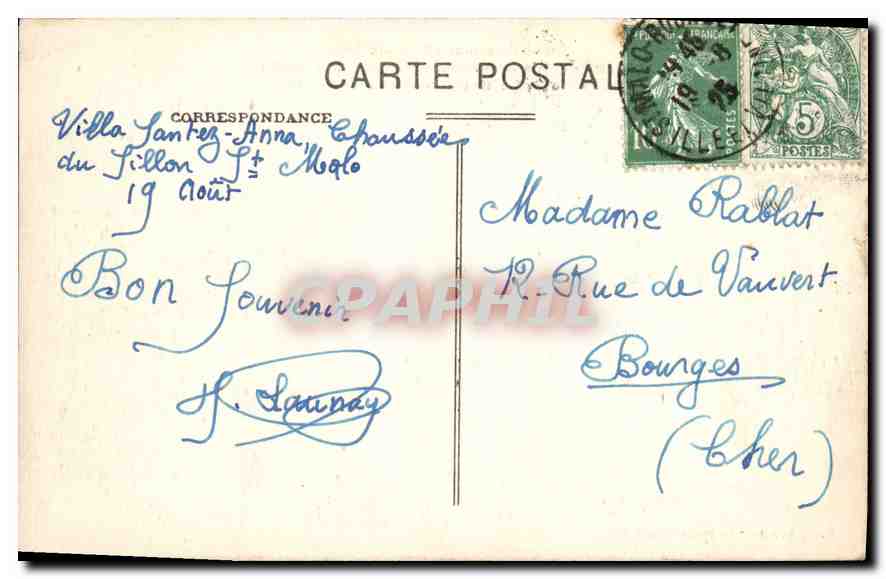 CARTE POSTAL
CORRESPONDANCE
Villa Santez-Anna, Chaussée
du Sillon St Malo
19 Août
Bon Souvenir
H. Launay
Madame Rablat
12-Rue de Vauvert
Bourges
(Cher)
FRANÇAISE
10
5c
POSTES
9 40
19 8
25
ILLE
CPAPHIL